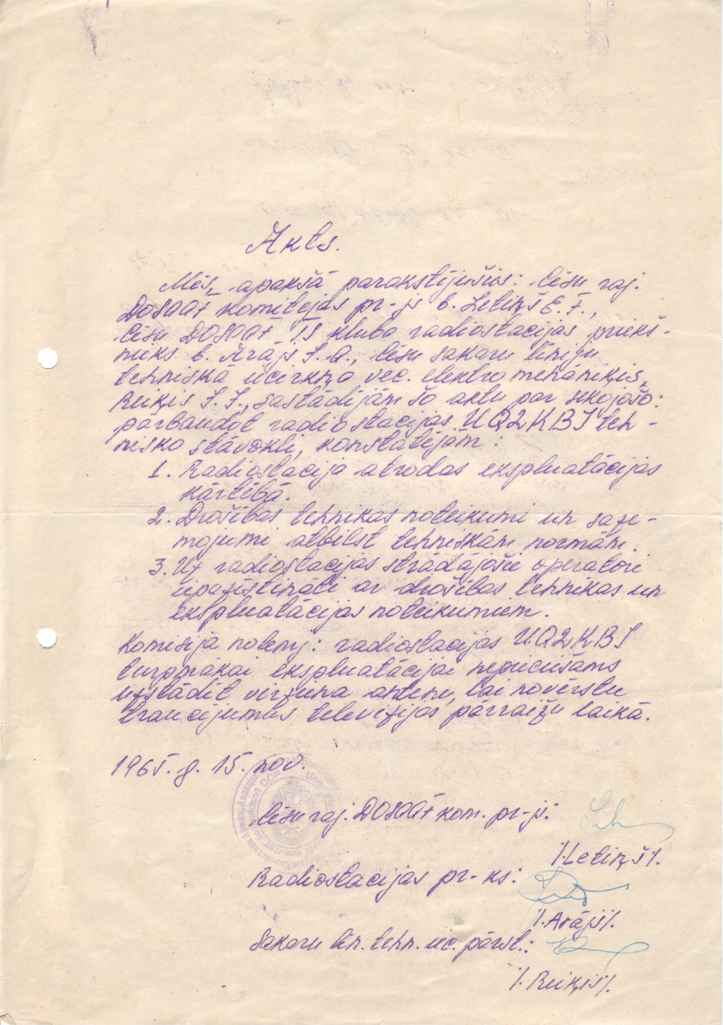 Akts.
Mēs, apakšā parakstījušies: Cēsu raj.
DOSAAF Komitejas pr-js b. Letiņš E.F.,
Cēsu DOSAAF TS kluba radiostacijas priekš-
nieks b. Ārājs J.A., Cēsu sakaru līniju
tehniskā iecirkņa vec. elektromehāniķis,
Reiķis J.J., sastādījām šo aktu par sekojošo:
pārbaudot radiostacijas UQ2KBI teh-
nisko stāvokli, konstatējām:
1. Radiostacija atrodas ekspluatācijas
kārtībā.
2. Drošības tehnikas noteikumi un
atbilst tehniskām normām.
3. Uz radiostacijas strādājošie operatori
iepazīstināti ar drošības tehnikas un
ekspluatācijas noteikumiem.
Komisija nolēmj: radiostacijas UQ2KBI
turpmākai ekspluatācijai nepieciešams
uzstādīt virziena antenu, lai novērstu
traucējumus televīzijas pārraižu laikā.
1965. g. 15. nov.
Cēsu raj. DOSAAF kom. pr-js:
/.Letiņš/.
Radiostacijas pr-ks:
/.Ārājs/.
Sakaru lin. tehn. iec. pārst.:
/. Reiķis/.